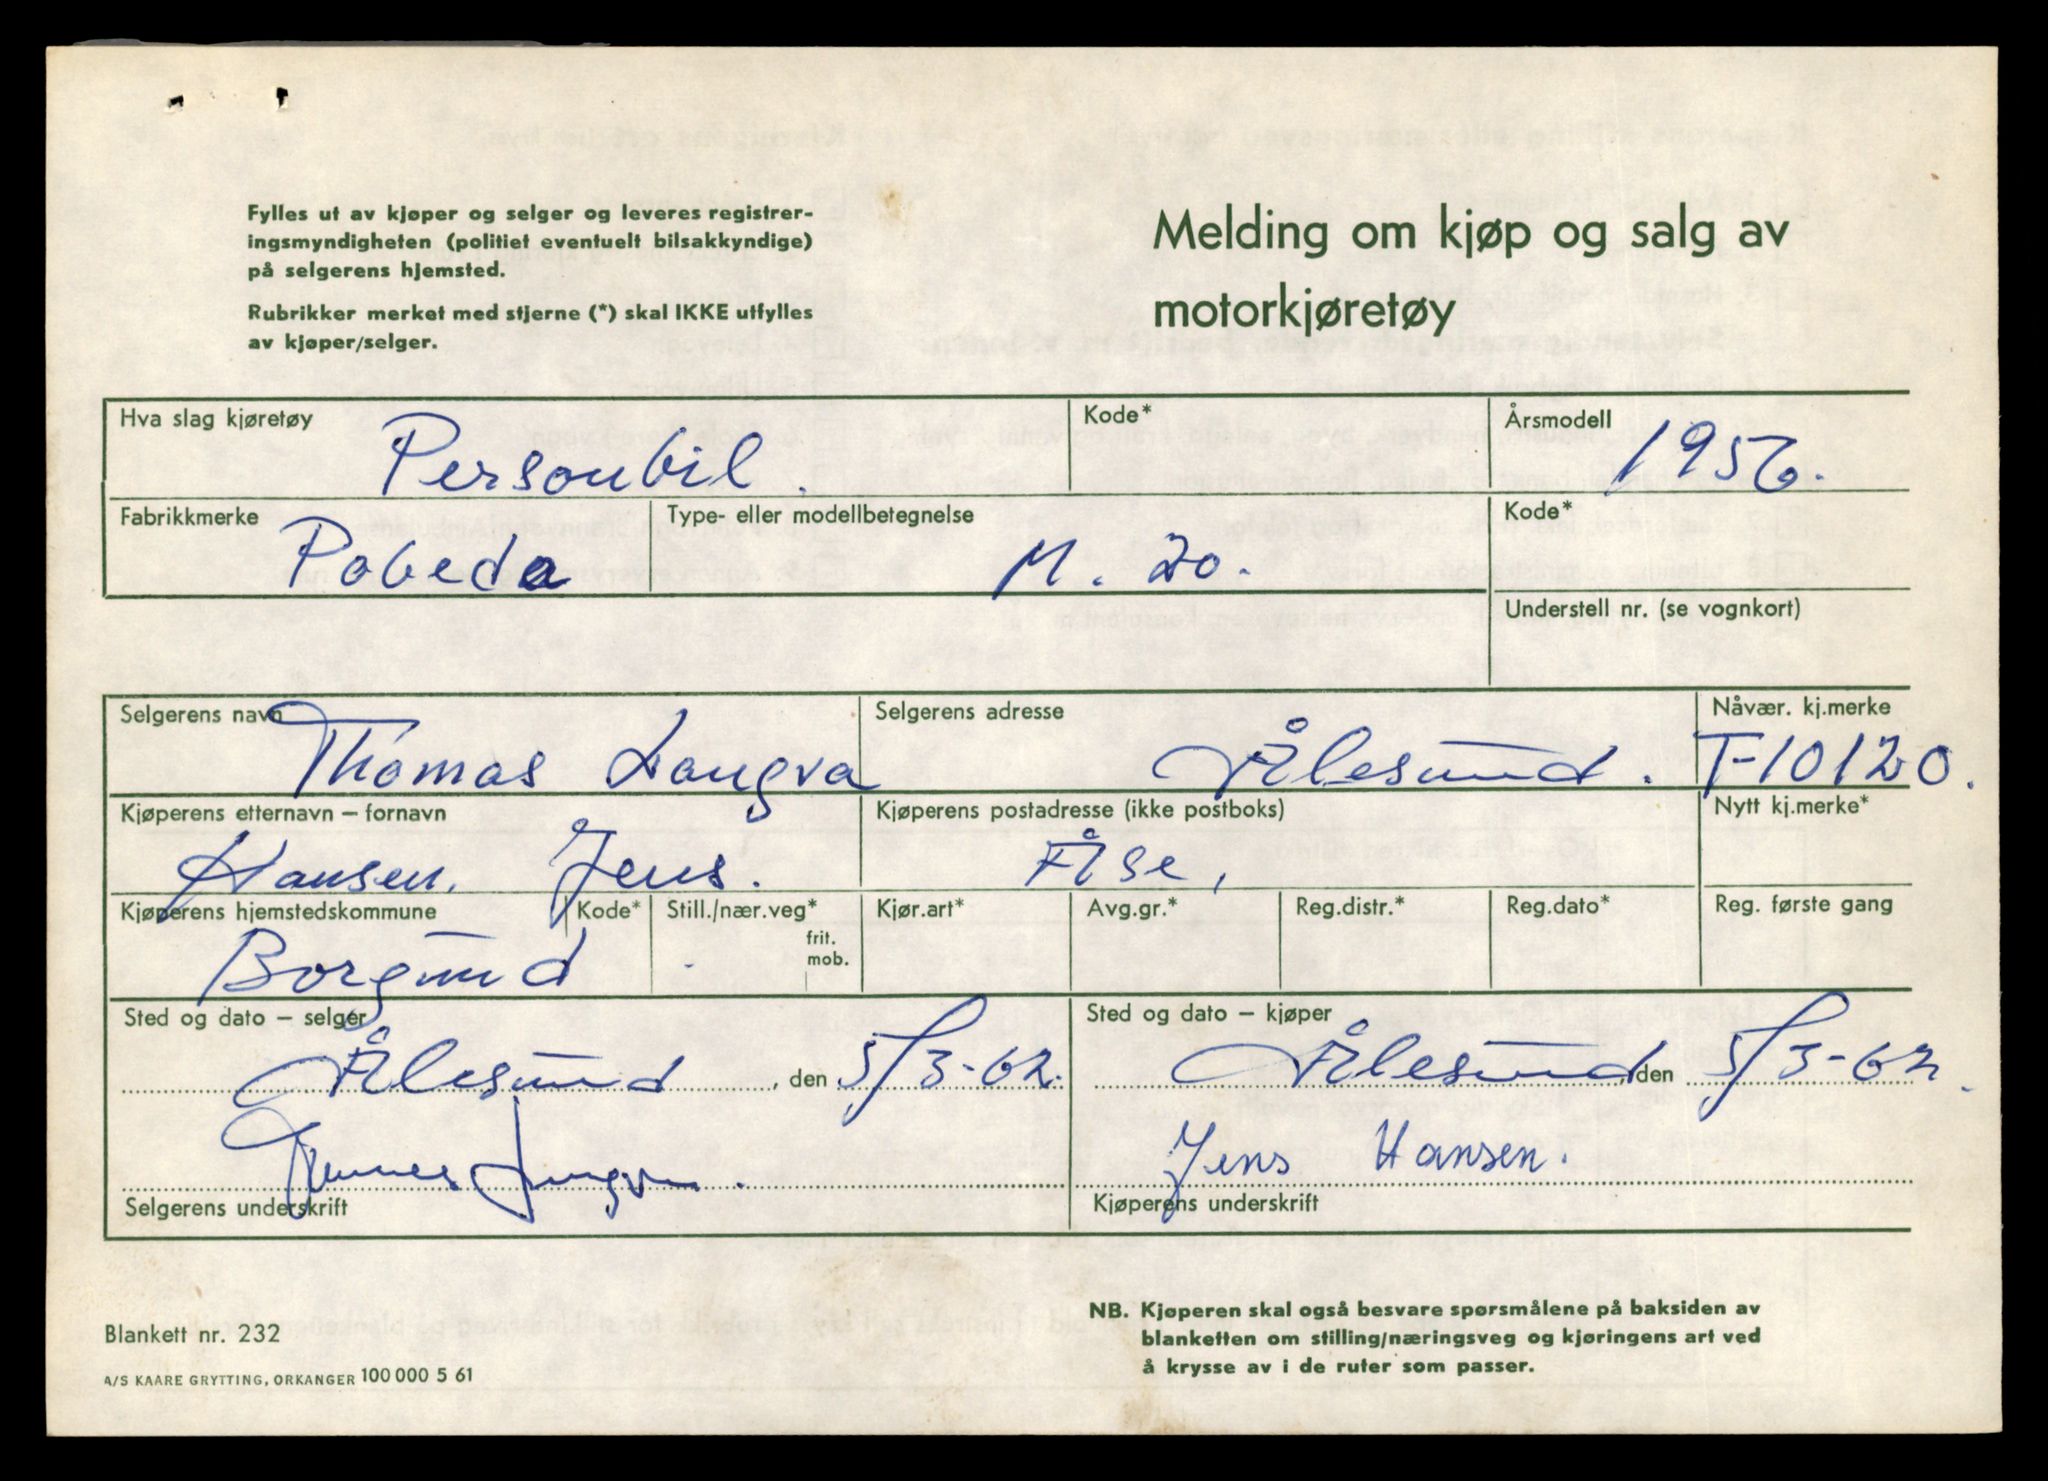 Fylles ut av kjøper og selger og leveres registrer-
ingsmyndigheten (politiet eventuelt bilsakkyndige)
på selgerens hjemsted.
Rubrikker merket med stjerne (*) skal IKKE utfylles
av kjøper/selger.
Melding om kjøp og salg av
motorkjøretøy
Hva slag kjøretøy
Personbil.
Kode*
Årsmodell
1956.
Fabrikkmerke
Pobeda
Type- eller modellbetegnelse
M. 20.
Kode*
Understell nr. (se vognkort)
Selgerens navn
Thomas Langva
Selgerens adresse
Ålesund.
Nåvær. kj.merke
T-10120.
Kjøperens etternavn – fornavn
Hansen, Jens.
Kjøperens postadresse (ikke postboks)
Åse,
Nytt kj.merke*
Kjøperens hjemstedskommune
Borgund
Kode*
Still./nær.veg*
frit.
mob.
Kjør.art*
Avg.gr.*
Reg.distr.*
Reg.dato*
Reg. første gang
Sted og dato – selger
Ålesund, den 5/3-62.
Sted og dato – kjøper
Ålesund, den 5/3-62.
Thomas Langva.
Selgerens underskrift
Jens Hansen.
Kjøperens underskrift
Blankett nr. 232
A/S KAARE GRYTTING, ORKANGER 100 000 5 61
NB. Kjøperen skal også besvare spørsmålene på baksiden av
blanketten om stilling/næringsveg og kjøringens art ved
å krysse av i de ruter som passer.